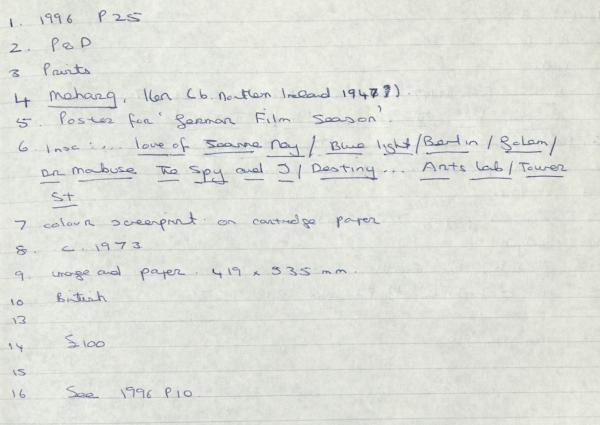 1. 1996 P25
2. P&D
3 Prints
4 Meharg, Ken (b. Northern Ireland 1947?).
5. Poster for 'German Film Season'.
6 Insc: ... love of Jeanne Ney / Blue light / Berlin / Golem /
Dr Mabuse The Spy and I / Destiny ... Arts Lab / Tower
St
7 colour screenprint on cartridge paper
8. c. 1973
9 image and paper. 419 x 535 mm.
10 British
13
14 £100
15
16 See 1996 P10